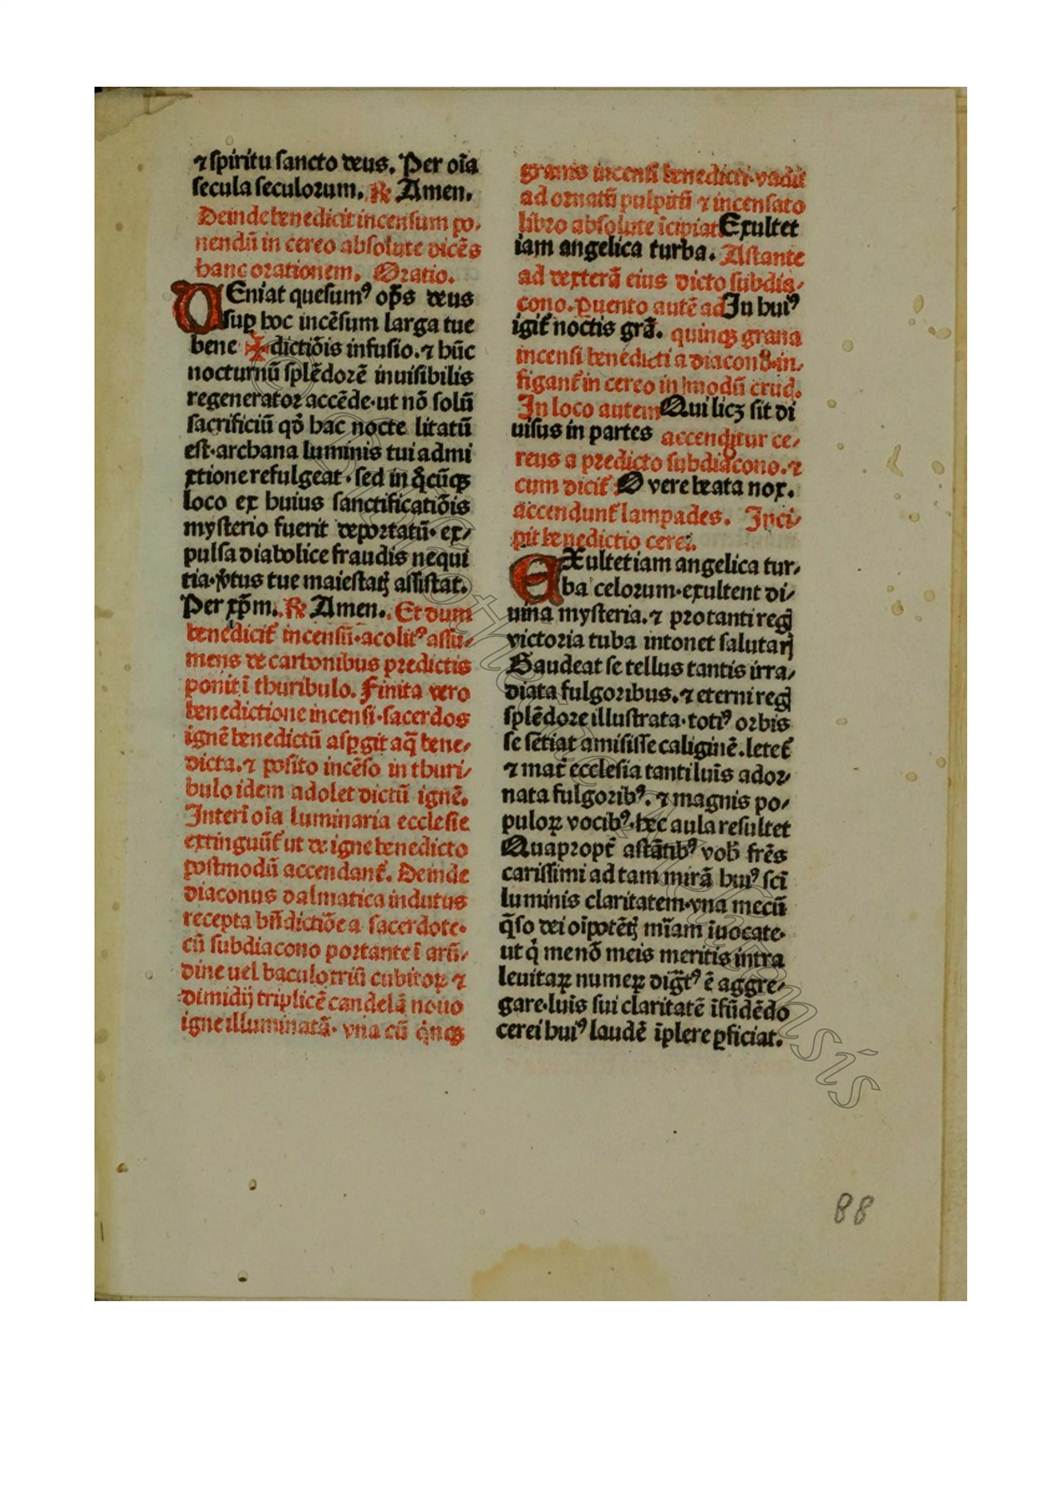 ⁊ spiritu sancto deus. Per oīa
secula seculorum. ℟ Amen.
Deinde benedicit incensum po-
nendū in cereo absolute dicēs
hanc orationem. Oratio.
VEniat quesumꝰ op̄s deus
sup hoc incēsum larga tue
bene ✠ dictiōis infusio. ⁊ hūc
nocturnū splēdorē inuisibilis
regenerator accēde· ut nō solū
sacrificiū qd̄ hac nocte litatū
est· archana luminis tui admi
xtione refulgeat· sed in q̄cūqꝫ
loco ex huius sanctificatiōis
mysterio fuerit deportatū· ex-
pulsa diabolice fraudis nequi
tia· v̄tus tue maiestatꝭ assistat.
Per xp̄m. ℟ Amen. Et dum
benedicit̄ incensū· acolitꝰ assu-
mens de carbonibus predictis
ponit ī thuribulo. Finita vero
benedictione incensi· sacerdos
ignē benedictū asꝑgit aq̄ bene-
dicta. ⁊ posito incēso in thuri-
bulo idem adolet dictū ignē.
Interī oīa luminaria ecclesie
extinguūt̄ ut de igne benedicto
postmodū accendant̄. Deinde
diaconus dalmatica indutus
recepta bn̄dictiōe a sacerdote·
cū subdiacono portante ī arū-
dine uel baculo triū cubitoꝝ ⁊
dimidij triplicē candelā nouo
igne illuminatā· vna cū q̄nqꝫ
granis incensi benedicti· vadit̄
ad ornatū pulpitū ⁊ incensato
libro absolute īcipiat Exultet
iam angelica turba. Astante
ad dexterā eius dicto subdia-
cono. Puento autē ad In huiꝰ
igit̄ noctis grā. quinqꝫ grana
incensi benedicti a diacono in-
figant̄ in cereo in modū crucꝭ.
In loco autem Qui licꝫ sit di
uisus in partes accenditur ce-
reus a predicto subdiacono. ⁊
cum dicit̄ O vere beata nox.
accendunt̄ lampades. Inci-
pit benedictio cerei.
EXultet iam angelica tur-
ba celorum· exultent di-
uina mysteria. ⁊ pro tanti regꝭ
victoria tuba intonet salutarꝭ
Gaudeat se tellus tantis irra-
diata fulgoribus. ⁊ eterni regꝭ
splēdore illustrata· totiꝰ orbis
se sētiat amisisse caliginē. letet̄
⁊ mat̄ ecclesia tanti luīs ador-
nata fulgoribꝰ. ⁊ magnis po-
puloꝝ vocibꝰ. hec aula resultet
Quapropt̄ astātibꝰ vob̄ fr̄es
carissimi ad tam mirā huiꝰ scī
luminis claritatem· vna mecū
q̄so dei oīpotētꝭ mīam īuocate·
ut q̄ me nō meis meritis intra
leuitaꝝ numeꝝ dig̅tꝰ ē aggre-
gare· luīs sui claritatē īfūdēdo
cerei huiꝰ laudē īplere ꝑficiat.
88